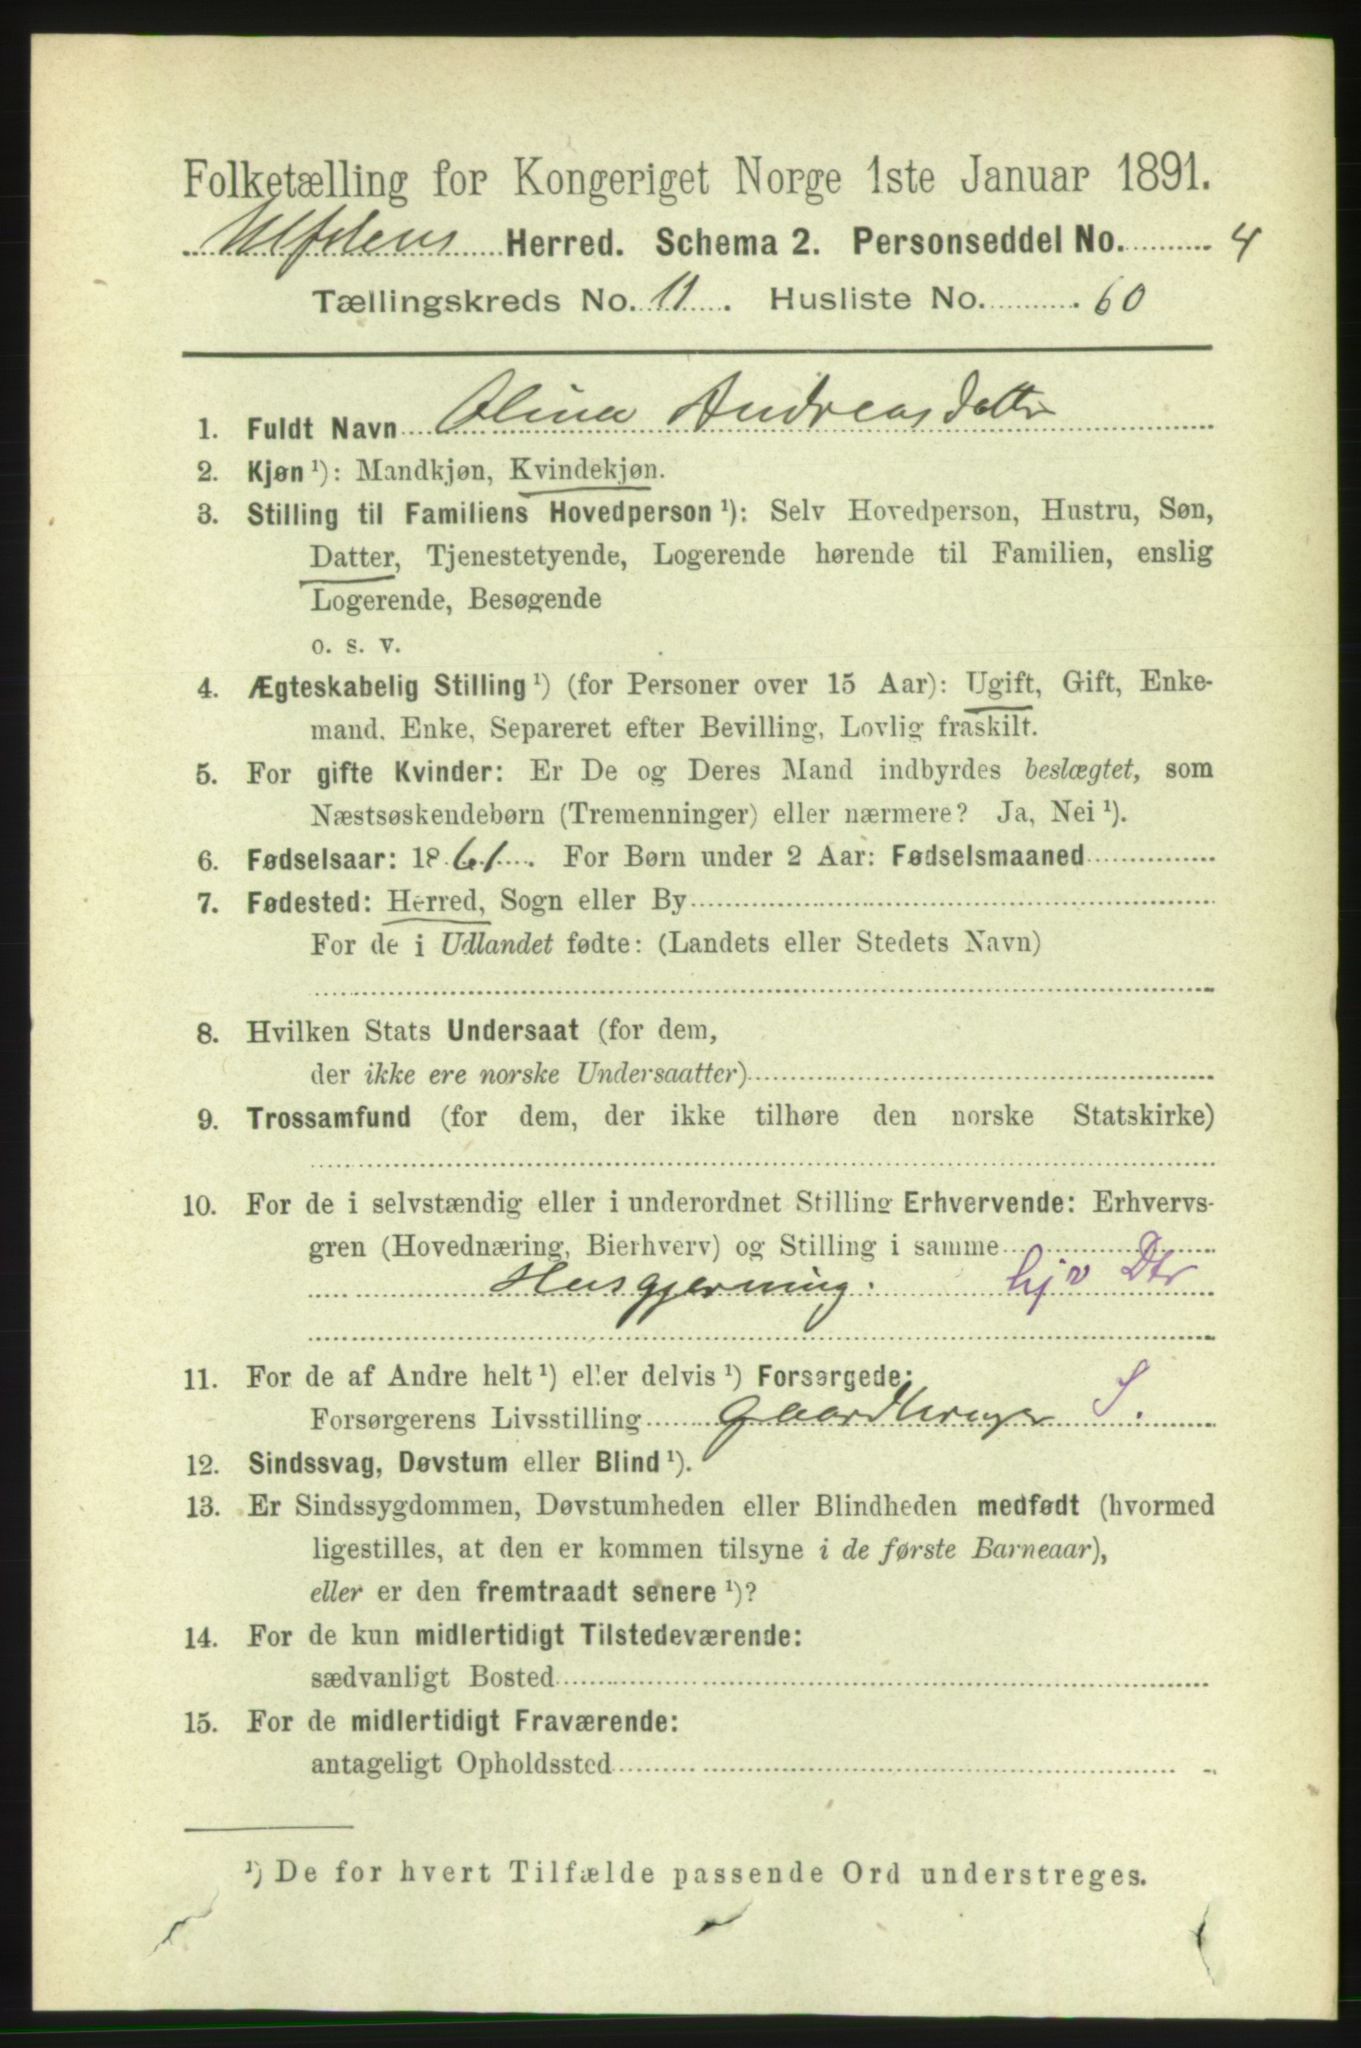 Folketælling for Kongeriget Norge 1ste Januar 1891.
Ulfstens Herred. Schema 2. Personseddel No. 4
Tællingskreds No. 11. Husliste No. 60
1. Fuldt Navn Olina Andreasdatter
2. Kjøn ¹): Mandkjøn, Kvindekjøn.
3. Stilling til Familiens Hovedperson ¹): Selv Hovedperson, Hustru, Søn,
Datter, Tjenestetyende, Logerende hørende til Familien, enslig
Logerende, Besøgende
o. s. v.
4. Ægteskabelig Stilling ¹) (for Personer over 15 Aar): Ugift, Gift, Enke-
mand, Enke, Separeret efter Bevilling, Lovlig fraskilt.
5. For gifte Kvinder: Er De og Deres Mand indbyrdes beslægtet, som
Næstsøskendebørn (Tremenninger) eller nærmere? Ja, Nei ¹).
6. Fødselsaar: 1861. For Børn under 2 Aar: Fødselsmaaned
7. Fødested: Herred, Sogn eller By
For de i Udlandet fødte: (Landets eller Stedets Navn)
8. Hvilken Stats Undersaat (for dem,
der ikke ere norske Undersaatter)
9. Trossamfund (for dem, der ikke tilhøre den norske Statskirke)
10. For de i selvstændig eller i underordnet Stilling Erhvervende: Erhvervs-
gren (Hovednæring, Bierhverv) og Stilling i samme
Husgjerning. hjv Dtr
11. For de af Andre helt ¹) eller delvis ¹) Forsørgede:
Forsørgerens Livsstilling Gaardbruger S.
12. Sindssvag, Døvstum eller Blind ¹).
13. Er Sindssygdommen, Døvstumheden eller Blindheden medfødt (hvormed
ligestilles, at den er kommen tilsyne i de første Barneaar),
eller er den fremtraadt senere ¹)?
14. For de kun midlertidigt Tilstedeværende:
sædvanligt Bosted
15. For de midlertidigt Fraværende:
antageligt Opholdssted
¹) De for hvert Tilfælde passende Ord understreges.